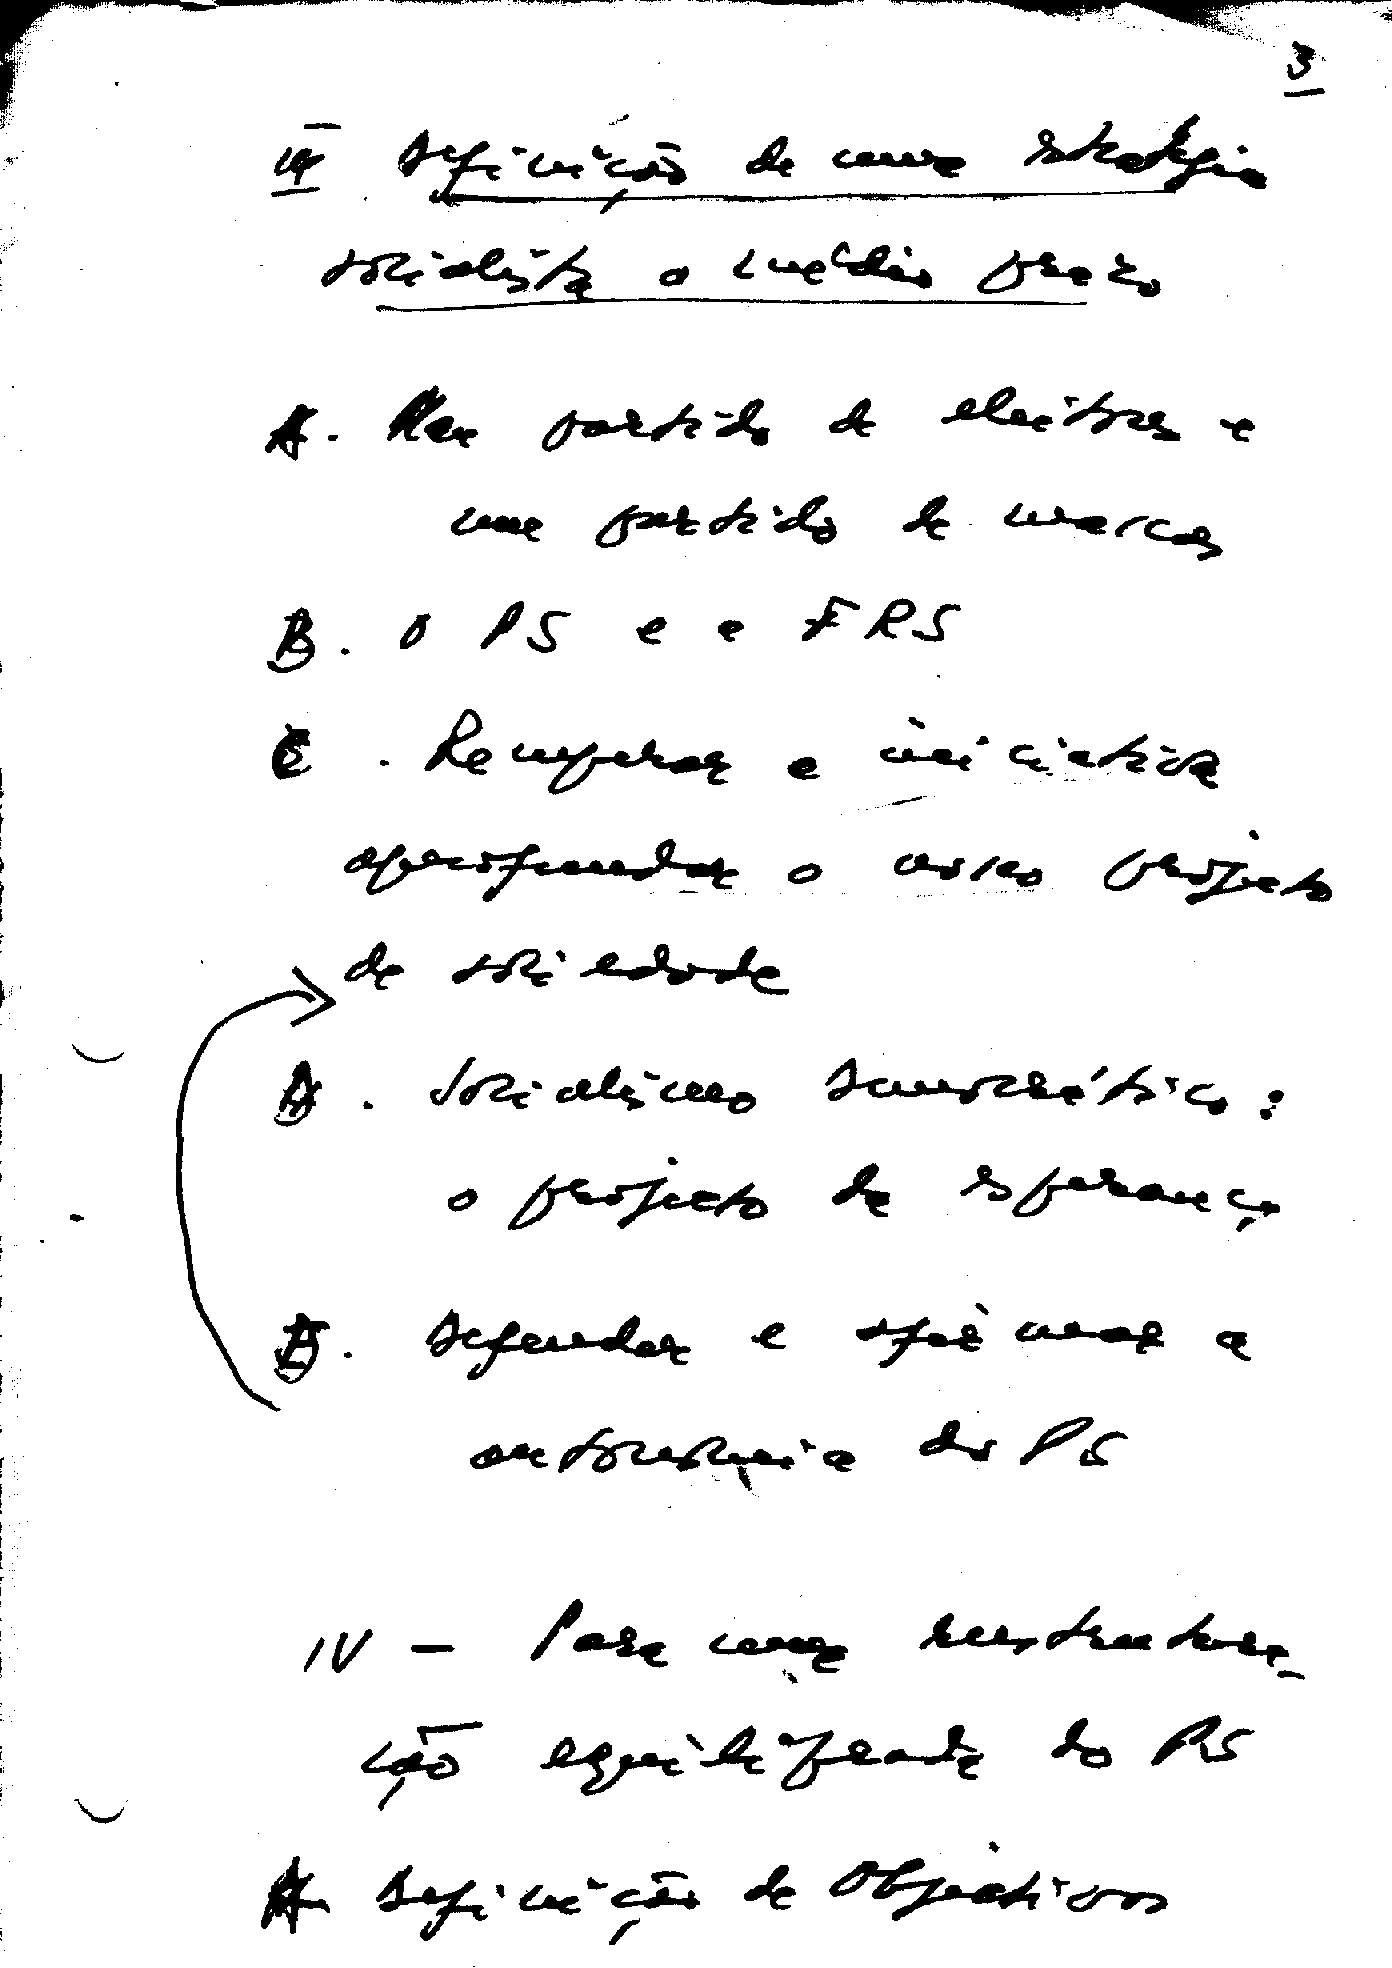 3
III Definição de uma estratégia
socialista a médio prazo
A. Um partido de eleitores e
um partido de massas
B. O PS e a FRS
C. Recuperar a iniciativa
aprofundar o nosso projecto
de sociedade
D. Socialismo democrático:
o projecto de esperança
E. Defender e afirmar a
autonomia do PS
IV - Para uma reestrutura-
ção equilibrada do PS
A Definição de Objectivos